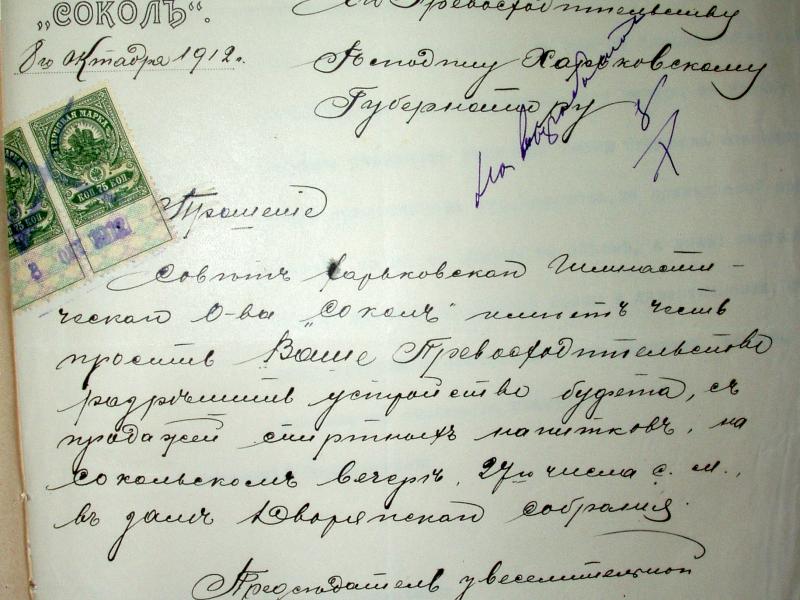 „СОКОЛЪ“.
8го Октября 1912 г.
Его Превосходительству
Господину Харьковскому
Губернатору
ГЕРБОВАЯ МАРКА
КОП 75 КОП
75 КОП
8 ОКТ 1912
Прошеніе
Совѣтъ Харьковскаго Гимнасти-
ческаго О-ва „Соколъ“ имѣетъ честь
просить Ваше Превосходительство
разрѣшить устройство буфета, съ
продажей спиртныхъ напитковъ, на
сокольскомъ вечерѣ, 27го числа с. м.,
въ домѣ Дворянскаго собранія.
Предсѣдатель увеселительной